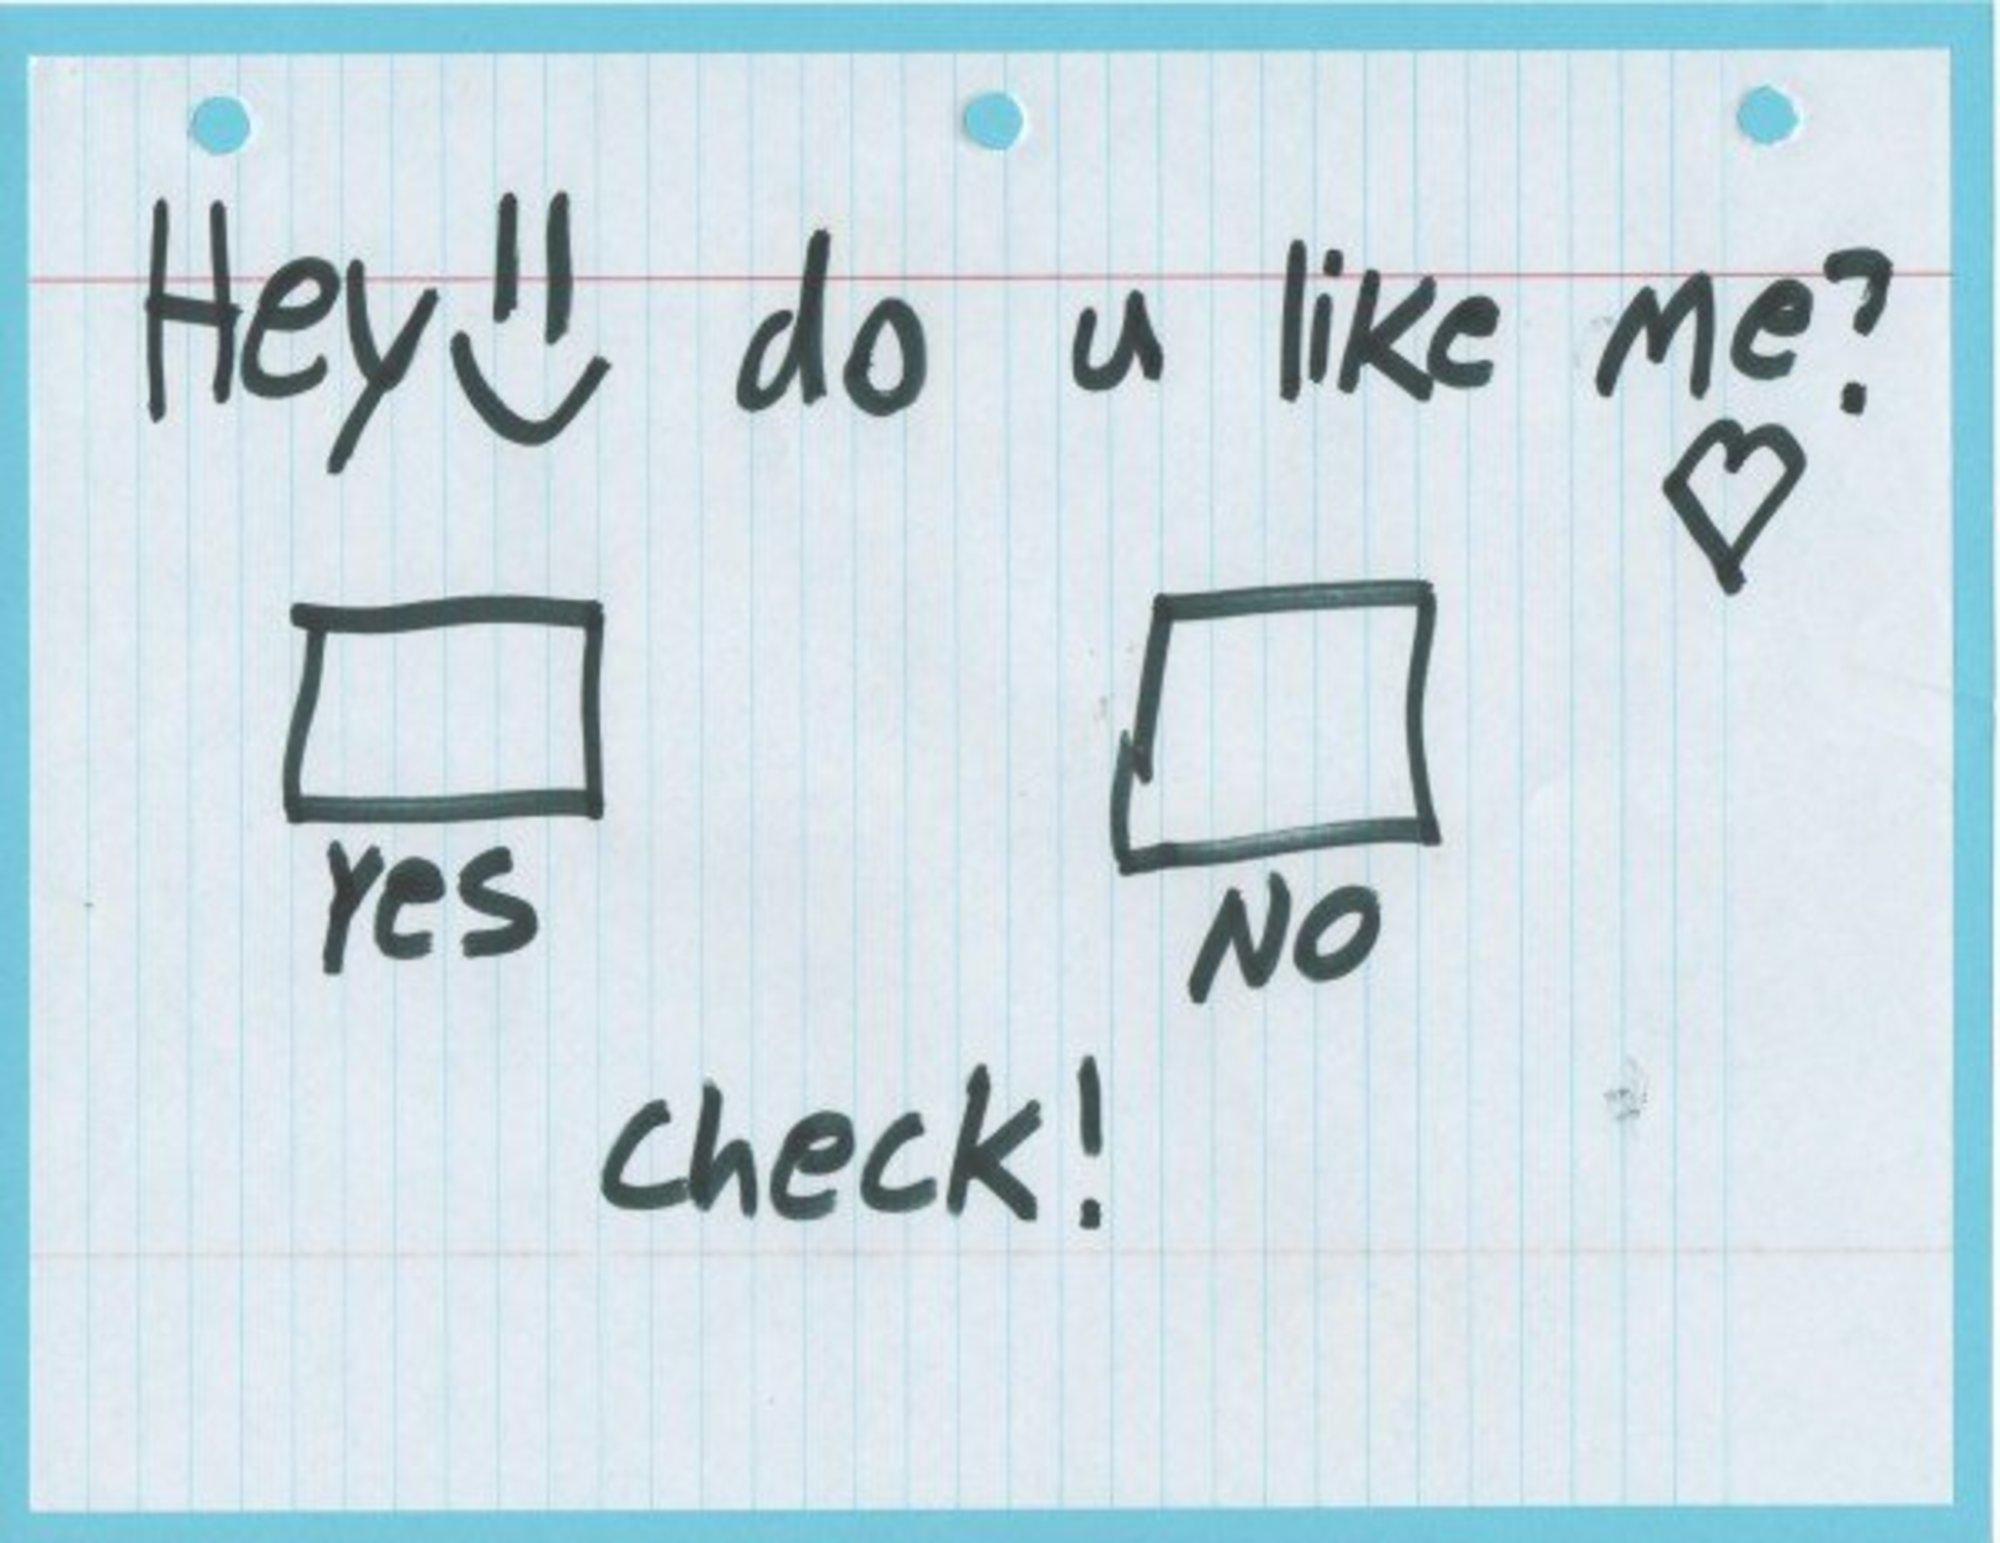 Hey do u like me?
Yes
No
check!